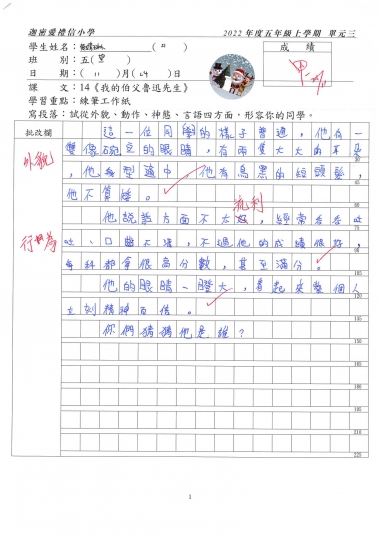 迦密愛禮信小學 2022年度五年級上學期 單元三
學生姓名: ( )
班別: 五(望) 成績
日期: (11)月(24)日 甲
課文: 14《我的伯父魯迅先生》
學習重點: 練筆工作紙
寫段落: 試從外貌、動作、神態、言語四方面,形容你的同學。
批改欄
這一位同學的樣子普通,他有一
雙像碗 的眼睛,有兩隻大大的耳朵
外貌
,他 型適中 他有烏黑的短頭髮,
他不算矮。
流利
他說話方面不太好,經常吞吞吐
行為
吐、口齒不清,不過他的成績很好,
每科都拿很高分數,甚至滿分。
他的眼睛一瞪大,看起來整個人
立刻精神百倍。
你們猜猜他是誰?
15
45
60
75
90
105
120
135
150
165
180
195
210
225
1